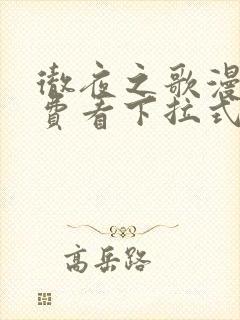 彻夜之歌漫
费看下拉式
高岳路